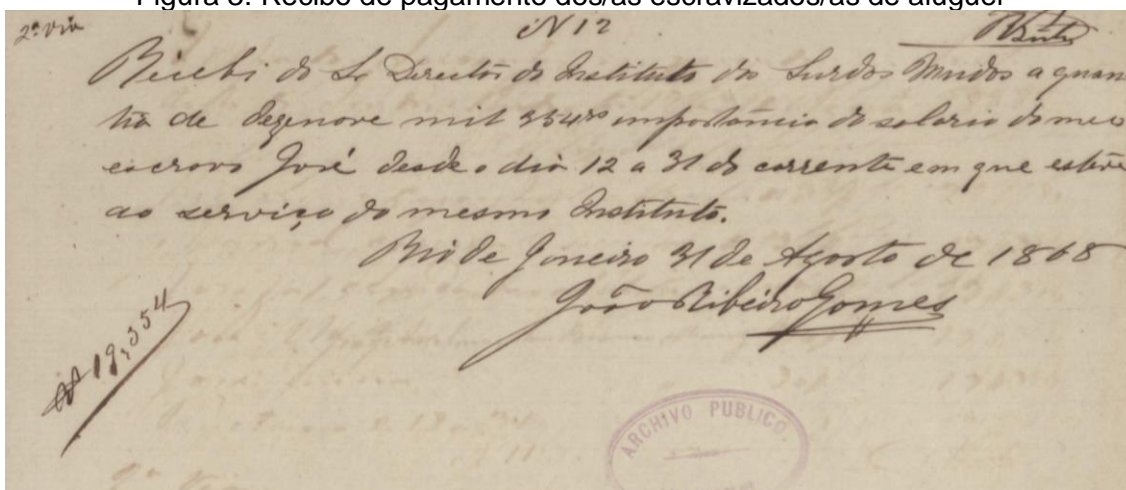 Figura 3. Recibo de pagamento dos/as escravizados/as de aluguel
2ª via
N 12
Recebi do Sr Director do Instituto dos Surdos Mudos a quan
tia de dezenove mil 354rs importancia do salario do meu
escravo José desde o dia 12 a 31 do corrente em que esteve
ao serviço do mesmo Instituto.
Rio de Janeiro 31 de Agosto de 1868
João Ribeiro Gomes
19,354
ARCHIVO PUBLICO.